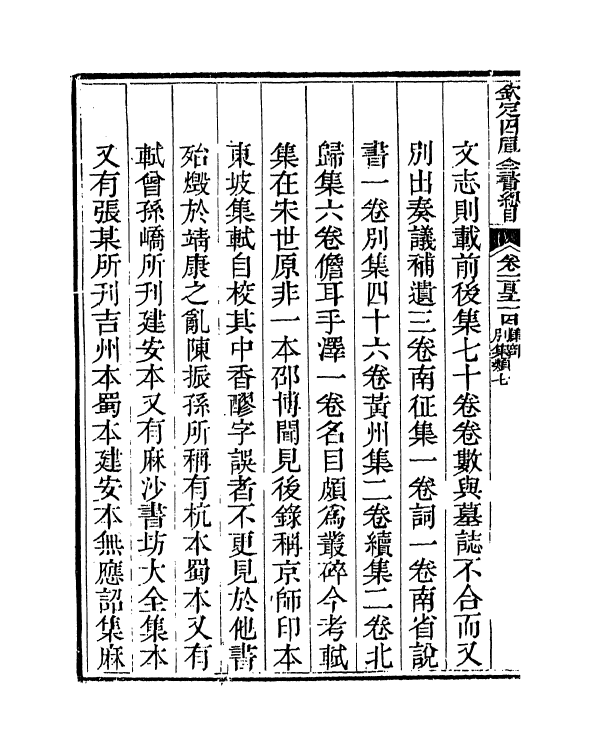 欽定四庫全書總目 卷一百五十四 集部 別集類七
文志則載前後集七十卷卷數與墓誌不合而又
別出奏議補遺三卷南征集一卷詞一卷南省說
書一卷別集四十六卷黃州集二卷續集二卷北
歸集六卷儋耳手澤一卷名目頗爲叢碎今考軾
集在宋世原非一本邵博聞見後錄稱京師印本
東坡集軾自校其中香醪字誤者不更見於他書
殆燬於靖康之亂陳振孫所稱有杭本蜀本又有
軾曾孫嶠所刊建安本又有麻沙書坊大全集本
又有張某所刊吉州本蜀本建安本無應詔集麻